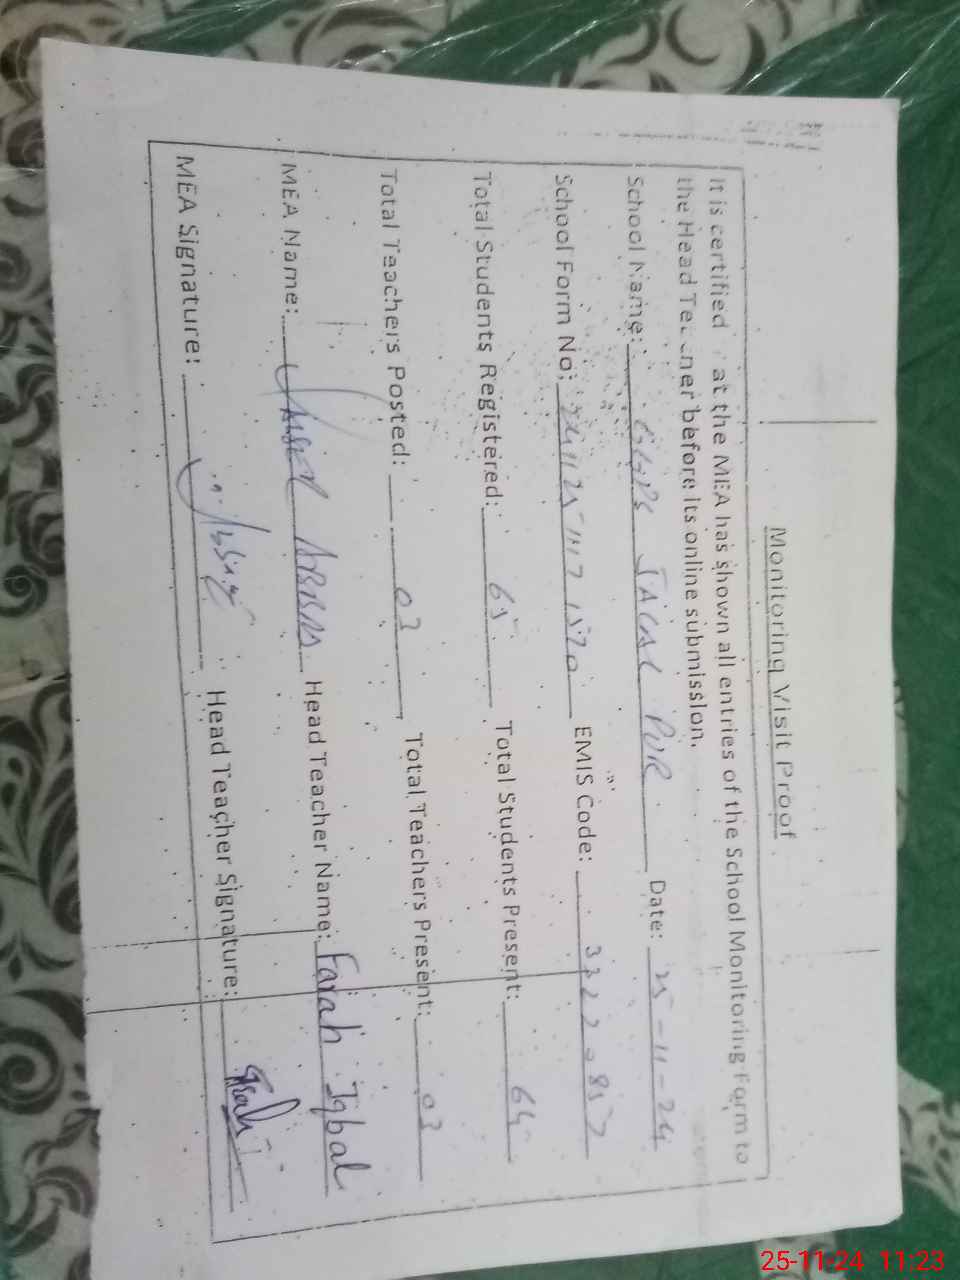 Monitoring Visit Proof
It is certified at the MEA has shown all entries of the School Monitoring Form to
the Head Teacher before its online submission.
School Name: GGPS PUR Date: 25-11-24
School Form No: EMIS Code: 32220857
Total Students Registered: 65 Total Students Present: 64
Total Teachers Posted: 03 Total Teachers Present: 03
MEA Name: Head Teacher Name: Farah Iqbal
MEA Signature: Head Teacher Signature:
25-11-24 11:23